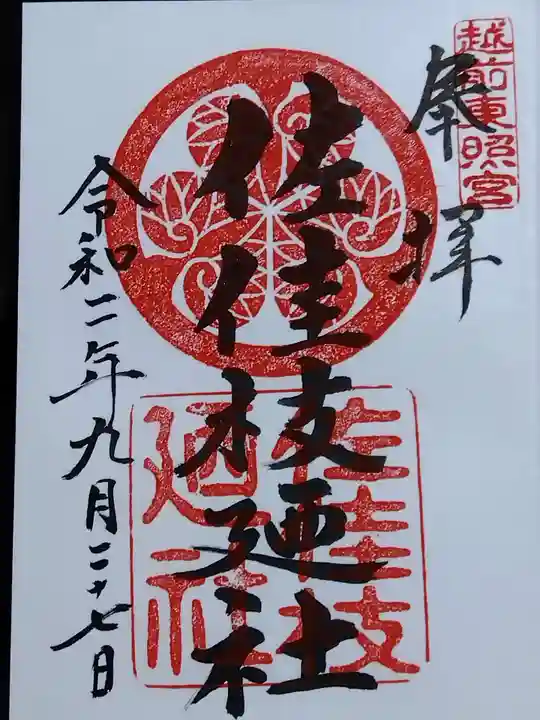 越前東照宮
奉拝
佐佳枝廼社
佐佳枝廼社
令和二年九月二十七日